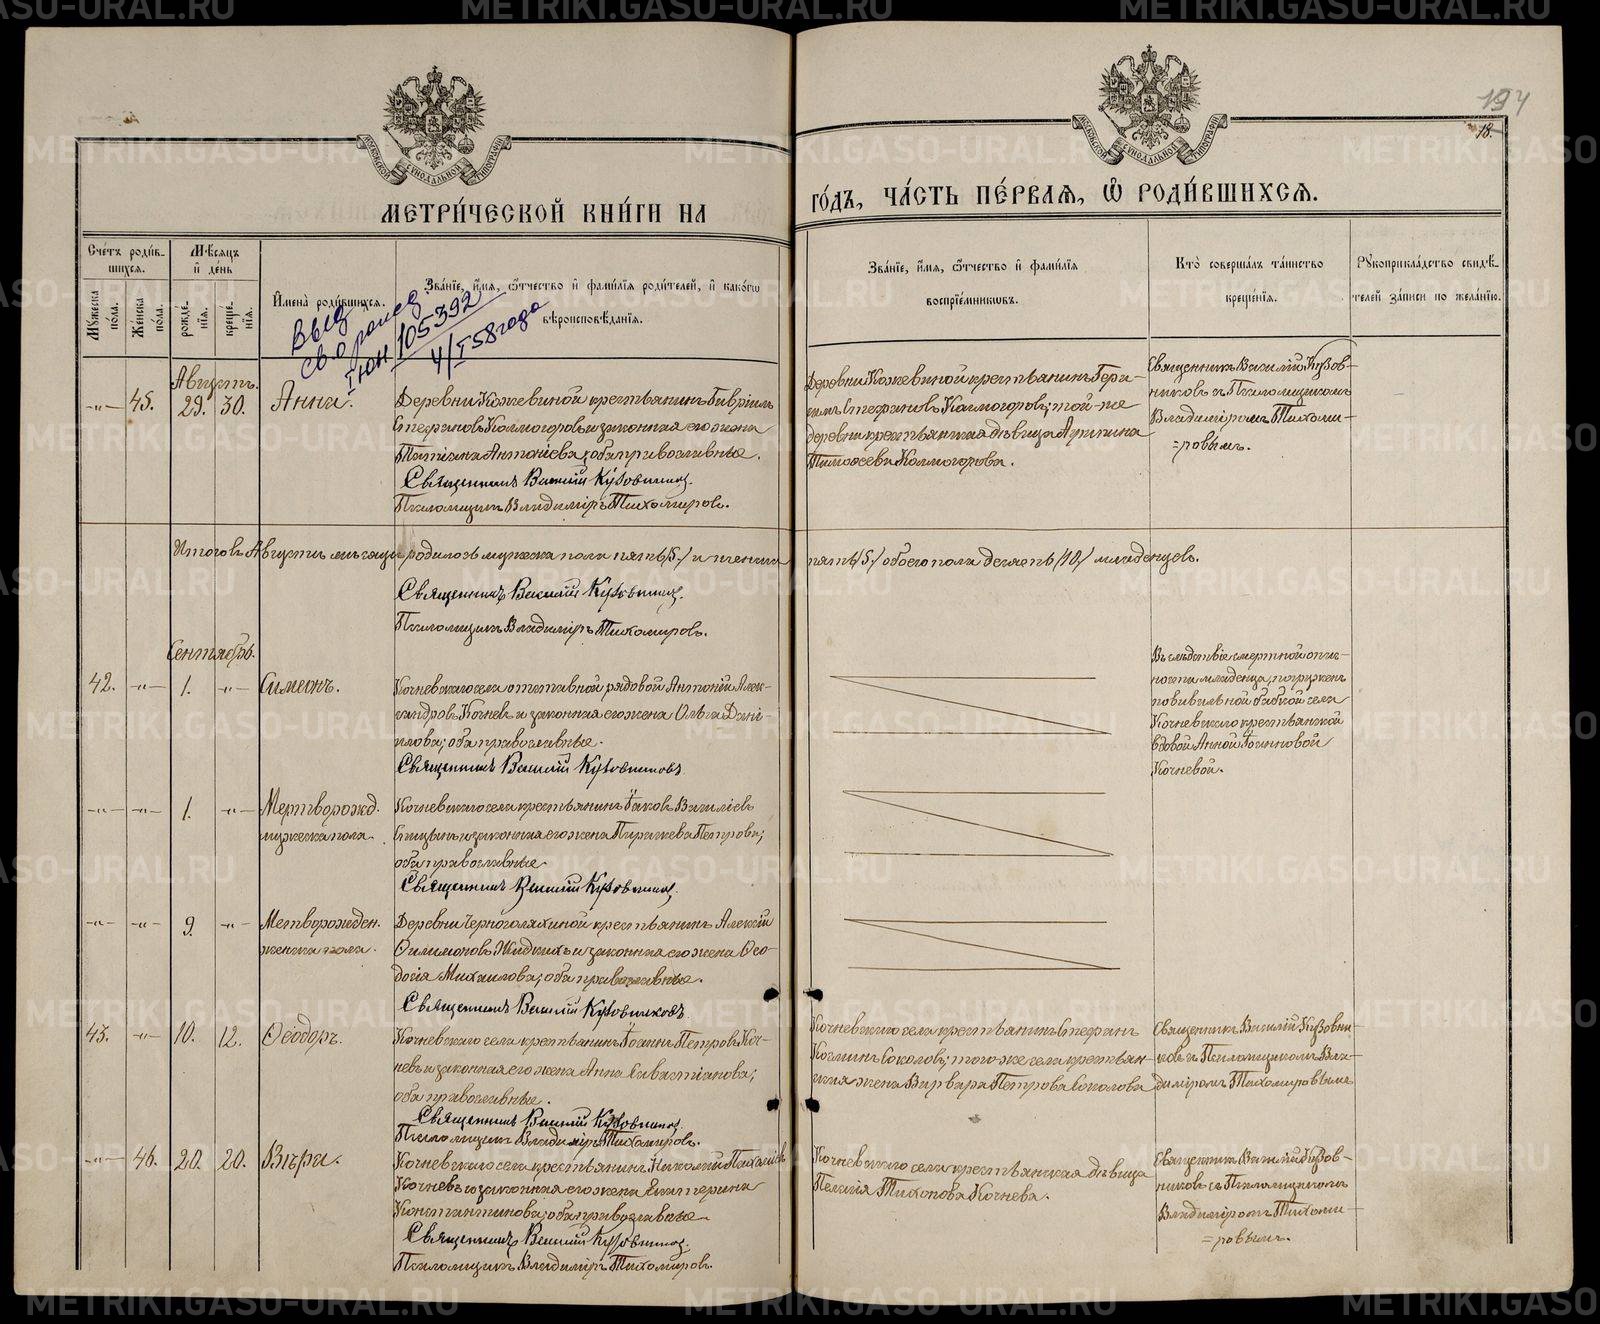 194
18.
МЕТРИ́ЧЕСКОЙ КНИ́ГИ НА
ГО́ДЪ, ЧА́СТЬ ПЕ́РВАЯ, Ѡ РОДИ́ВШИХСЯ.
Сче́тъ роди́в-
шихся.
Му́жеска по́ла.
Же́нска по́ла.
Мѣ́сяцъ
и де́нь
рожде́-
нїя.
креще́-
нїя.
Имена̀ роди́вшихся.
Зва́нїе, и́мя, ѻ́тчество и фами́лїя роди́телей, и како́гѡ
вѣроисповѣ́данїя.
Зва́нїе, и́мя, ѻ́тчество и фами́лїя
воспрїе́мниковъ.
Кто̀ соверша́лъ та́инство
креще́нїя.
Рꙋкоприкла́дство свидѣ́-
телей за́писи по жела́нїю.
Выд
св о рожд.
I ЮН 105392
4/I 58 года
Августъ.
-"- 45. 29. 30. Анна.
Деревни Кожевиной крестьянинъ Гавріилъ
Стефановъ Колмогоровъ и законная его жена
Татіана Антоніева; оба православные.
Священникъ Василій Кузовниковъ.
Псаломщикъ Владиміръ Тихомировъ.
Деревни Кожевиной крестьянинъ Гера-
симъ Стефановъ Колмогоровъ; той-же
деревни крестьянская дѣвица Агрипина
Тимоѳеева Колмогорова.
Священникъ Василій Кузов-
никовъ съ Псаломщикомъ
Владиміромъ Тихоми-
=ровымъ.
Итого въ Августѣ мѣсяцѣ родилось мужеска пола пять /5./ и женска
пять /5./ обоего пола десять /10./ младенцевъ.
Священникъ Василій Кузовниковъ.
Псаломщикъ Владиміръ Тихомировъ.
Сентябрь.
42. -"- 1. -"- Симеонъ.
Кочневскаго села отставной рядовой Антоній Алек-
сандровъ Кочневъ и законная его жена Ольга Дані-
илова; оба православные.
Священникъ Василій Кузовниковъ
Въ слѣдствіе смертной опас-
ности младенца, погруженъ
повивальной бабкой села
Кочневскаго крестьянской
вдовой Анной Іоанновой
Кочневой.
-"- -"- 1. -"- Мертворожд.
мужеска пола.
Кочневскаго села крестьянинъ Іаковъ Василіевъ
Спицынъ и законная его жена Параскева Петрова;
оба православные.
Священникъ Василій Кузовниковъ.
-"- -"- 9. -"- Метворожден.
женска пола.
Деревни Черноголяхиной крестьянинъ Алексій
Филимоновъ Жидкихъ и законная его жена Ѳео-
досія Михаилова; оба православные.
Священникъ Василій Кузовниковъ
43. -"- 10. 12. Ѳеодоръ.
Кочневскаго села крестьянинъ Іоаннъ Петровъ Коч-
невъ и законная его жена Анна Севастіанова;
оба православные.
Священникъ Василій Кузовниковъ.
Псаломщикъ Владиміръ Тихомировъ.
Кочневскаго села крестьянинъ Стефанъ
Козминъ Соколовъ; того-же села крестьян-
ская жена Варвара Петрова Соколова
Священникъ Василій Кузовни-
ковъ съ Псаломщикомъ Вла-
диміромъ Тихомировымъ
-"- 46. 20. 20. Вѣра.
Кочневскаго села крестьянинъ Николай
Кочневъ и законная его жена Екатерина
Константинова; оба православные.
Священникъ Василій Кузовниковъ.
Псаломщикъ Владиміръ Тихомировъ.
Кочневскаго села крестьянская дѣвица
Пелагія Тихонова Кочнева.
Священникъ Василій Кузов-
никовъ съ Псаломщикомъ
Владиміромъ Тихоми-
=ровымъ.
METRIKI.GASO-URAL.RU